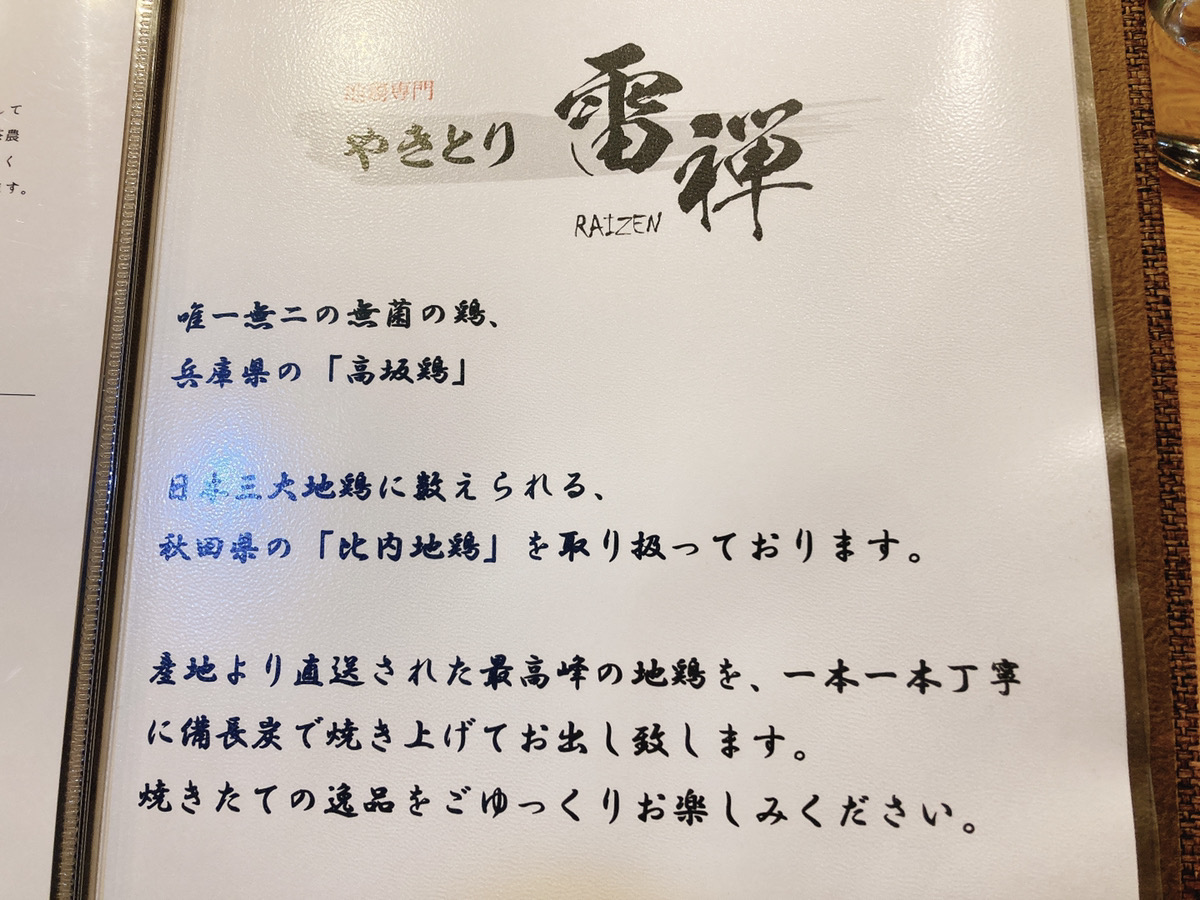 して
農
く
ます。
専門
やきとり
雷禅
RAIZEN
唯一無二の無菌の鶏、
兵庫県の「高坂鶏」
日本三大地鶏に数えられる、
秋田県の「比内地鶏」を取り扱っております。
産地より直送された最高峰の地鶏を、一本一本丁寧
に備長炭で焼き上げてお出し致します。
焼きたての逸品をごゆっくりお楽しみください。